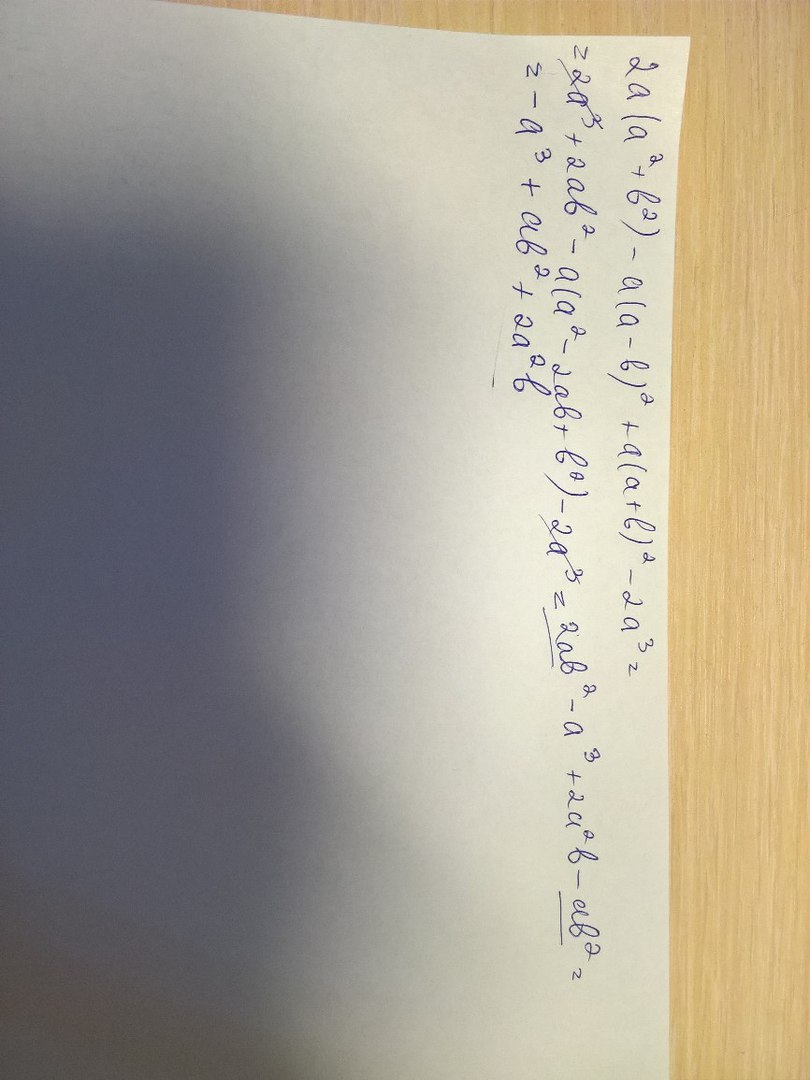 2a(a²+b²)-a(a-b)²+a(a+b)²-2a³=
=2a³+2ab²-a(a²-2ab+b²)-2a³=2ab²-a³+2a²b-ab²=
=-a³+ab²+2a²b